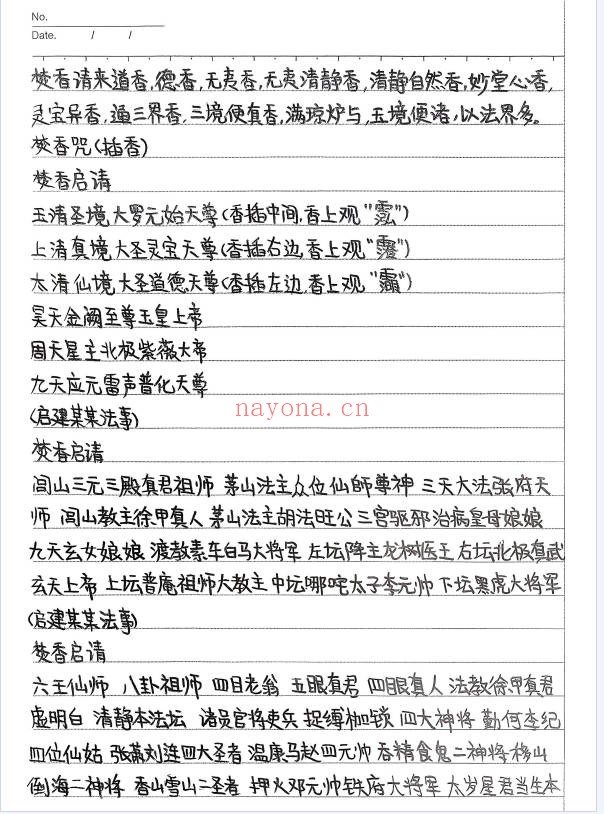 No.
Date. / /
焚香请来道香,德香,无夷香,无夷清静香,清静自然香,妙堂心香,
灵宝异香,通三界香,三境便真香,满琼炉与,五境便诸,以法界多。
焚香咒(插香)
焚香启请
玉清圣境大罗元始天尊(香插中间,香上观“”)
上清真境大圣灵宝天尊(香插右边,香上观“”)
太清仙境大圣道德天尊(香插左边,香上观“”)
昊天金阙至尊玉皇上帝
周天星主北极紫薇大帝
九天应元雷声普化天尊
nayona.cn
(启建某某法事)
焚香启请
闾山三元三殿真君祖师 茅山法主众位仙師尊神 三天大法张府天
师 闾山教主徐甲真人 茅山法主胡法旺公 三宫驱邪治病皇母娘娘
九天玄女娘娘 渡教素车白马大将军 左坛陣主龙树医王 右坛北极真武
玄天上帝 上坛普庵祖师大教主 中坛哪咤太子李元帅 下坛黑虎大将军
(启建某某法事)
焚香启请
六壬仙师 八卦祖师 四目老翁 五眼真君 四眼真人 法教徐甲真君
虚明白 清静本法坛 诸员官将吏兵 捉缚枷锁 四大神将 勤何李纪
四位仙姑 张萧刘连四大圣者 温康马赵四元帅 吞精食鬼二神将 移山
倒海二神将 香山雪山二圣者 押火邓元帅铁府大将军 太岁星君当生本